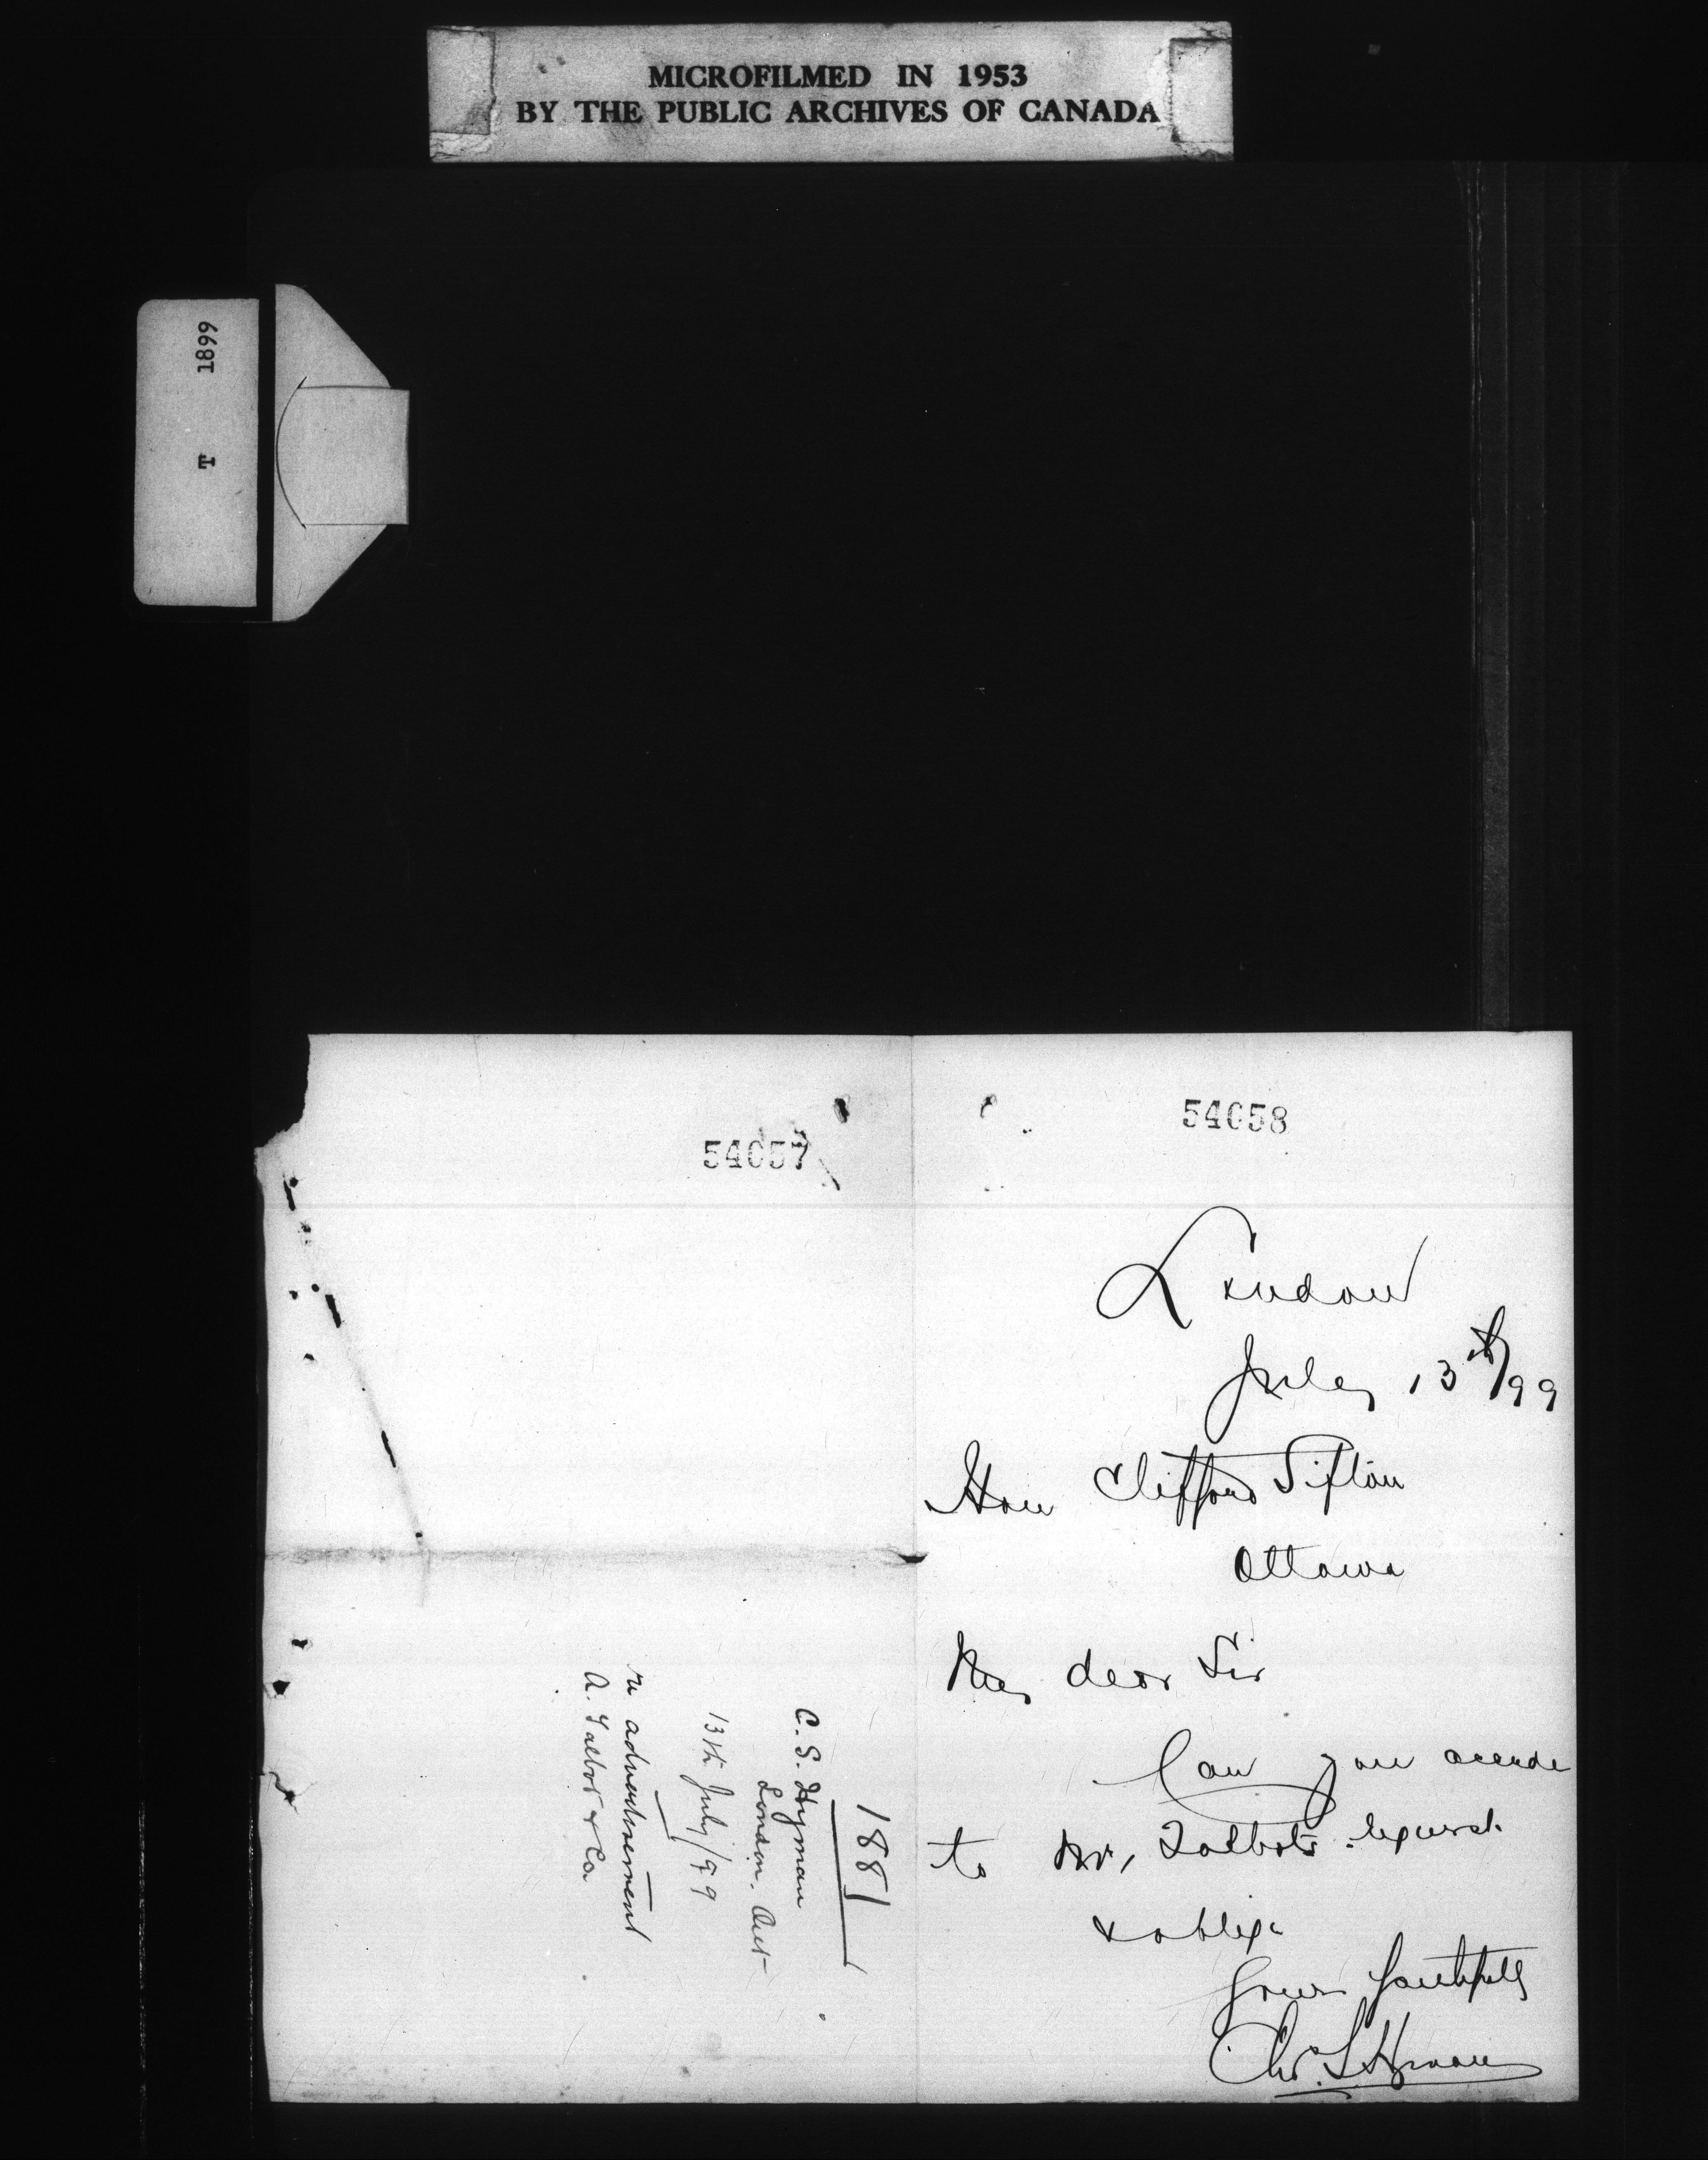 MICROFILMED IN 1953
BY THE PUBLIC ARCHIVES OF CANADA
T 1899
54057
1881
C. S. Hyman
London. Ont
13th July/99
re advertisement
A. Talbot & Co.
54058
London
July 13th/99
Hon Clifford Sifton
Ottawa
My dear Sir
Can you accede
to Mr, Talbots request
& oblige
Yours faithfully
Chs. S Hyman